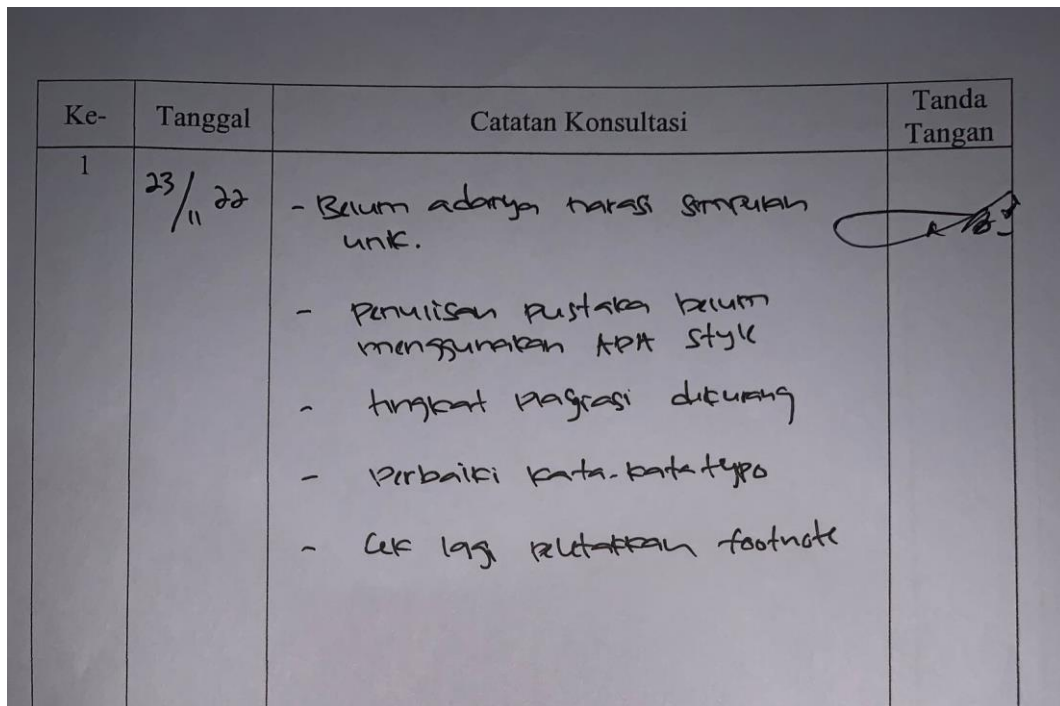 Ke- Tanggal Catatan Konsultasi Tanda Tangan
1 23/11 22
- Belum adanya narasi simpulan
unik.
- Penulisan pustaka belum
menggunakan APA style
- tingkat plagiasi dikurang
- Perbaiki kata-kata typo
- Cek lagi peletakkan footnote